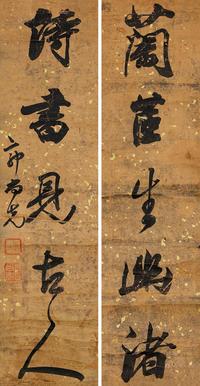 蘭茝生幽渚
詩書見古人